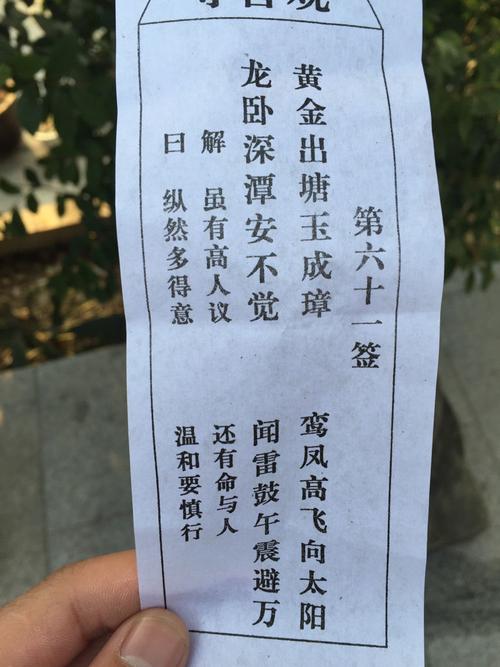 第六十一签
黄金出塘玉成璋 鸾凤高飞向太阳
龙卧深潭安不觉 闻雷鼓午震避万
解 虽有高人议 还有命与人
曰 纵然多得意 温和要慎行